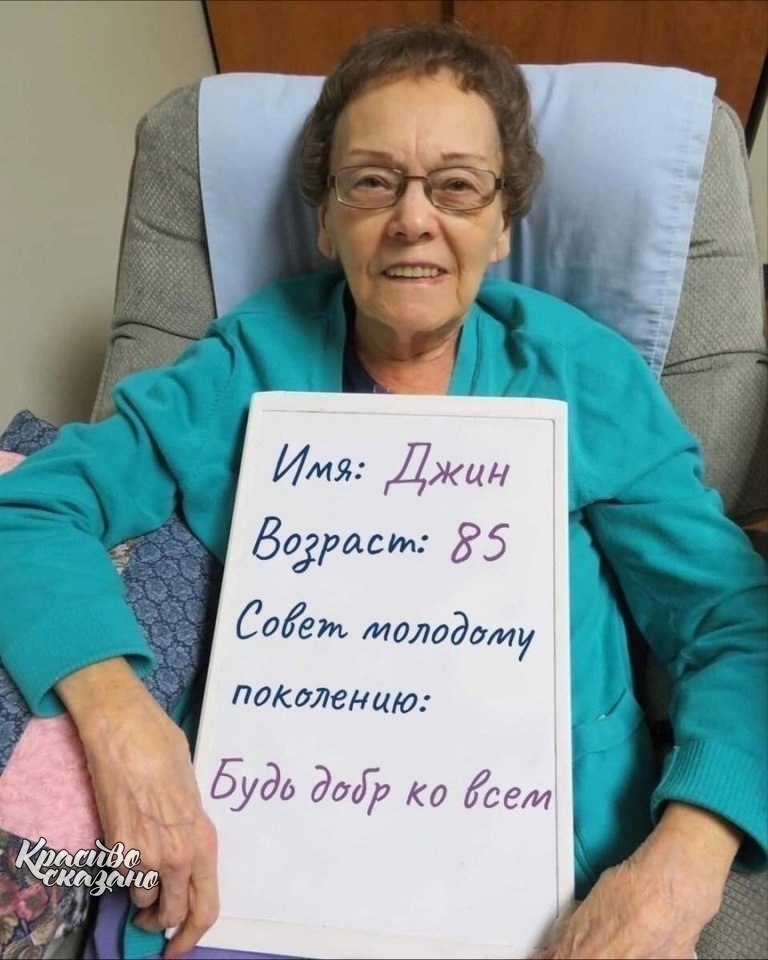 Имя: Джин
Возраст: 85
Совет молодому
поколению:
Будь добр ко всем
Красиво
сказано